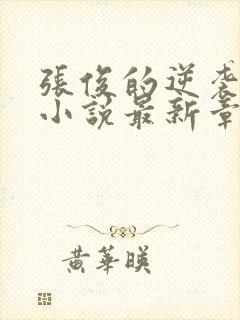 張俊的逆袭
小說最新章
黃華暎